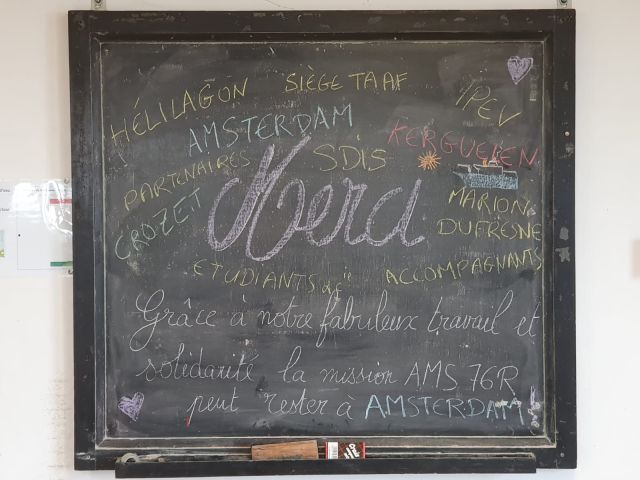 HÉLILAGON
SIÈGE TAAF
IPEV
AMSTERDAM
KERGUELEN
PARTENAIRES
SDIS
CROZET
Merci
MARION
DUFRESNE
ETUDIANTS
ACCOMPAGNANTS
Grâce à notre fabuleux travail et
solidarité la mission AMS 76R
peut rester à AMSTERDAM!